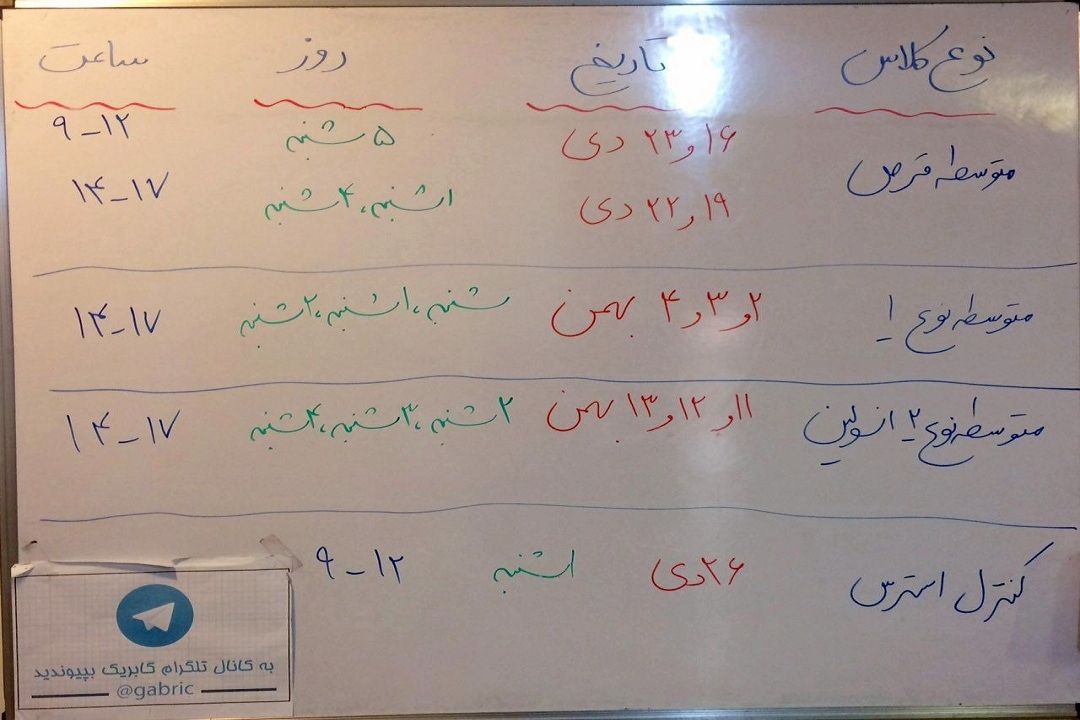 نوع کلاس تاریخ روز ساعت
متوسطه قرص ۱۶ و ۲۳ دی ۵ شنبه ۹-۱۲
۱۹ و ۲۲ دی ۱شنبه، ۴شنبه ۱۴-۱۷
متوسطه نوع ۱ ۲ و ۳ و ۴ بهمن شنبه، ۱شنبه، ۲شنبه ۱۴-۱۷
متوسطه نوع ۲ انسولین ۱۱ و ۱۲ و ۱۳ بهمن ۲شنبه، ۳شنبه، ۴شنبه ۱۴-۱۷
کنترل استرس ۲۶ دی ۱شنبه ۹-۱۲
به کانال تلگرام گابریک بپیوندید
@gabric